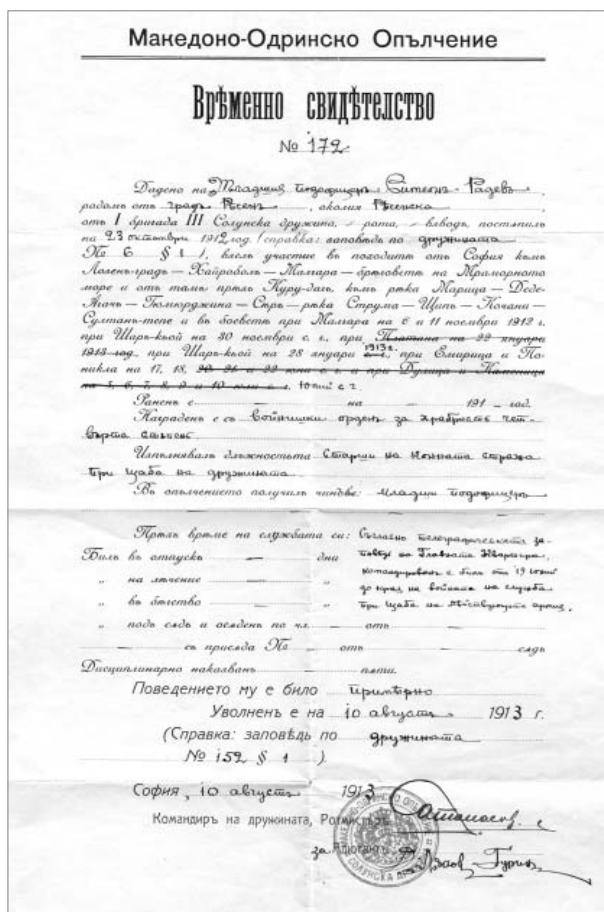 Македоно-Одринско Опълчение
Врѣменно свидѣтелство
№ 172
Дадено на Младши подофицеръ Симеонъ Радевъ,
родомъ отъ градъ Ресенъ, околия Ресенска
отъ I бригада III Солунска дружина, – рота, – взводъ, постъпилъ
на 23 октомврий 1912 год. (справка: заповѣдь по дружината
№ 6 § 1), взелъ участие въ походитѣ отъ София къмъ
Лозенъ-градъ – Хайроболъ – Малгара – брѣговетѣ на Мраморното
море и отъ тамъ прѣзъ Куру-дагъ, къмъ рѣка Марица – Деде-
Агачъ – Гюмюрджина – Сѣръ – рѣка Струма – Щипъ – Кочани –
Султанъ-тепе и въ боеветѣ при Малгара на 6 и 11 ноемврий 1912 г.
при Шаръ-кьой на 30 ноемврий с. г., при Платана на 22 януари
1913 год., при Шаръ-кьой на 28 януари 1913 г. с. г., при Емирица и По-
никла на 17, 18, 20 21 и 22 юни с. г. и при Дулица и Каменица
на 5, 6, 7, 8, 9 и 10 юли с. г. Юний с г.
Раненъ е — на — 191 – год.
Награденъ е съ войнишки орденъ за храбрость чет-
върта степень
Изпълнявалъ длъжностьта Старши на Конната стража
при щаба на дружината
Въ опълчението получилъ чинове: младши подофицеръ
Прѣзъ врѣме на службата си: Съгласно телеграфическата за-
Билъ въ отпускъ — дни повѣдь на Главната Квартира,
„ на лѣчение — „ командированъ е билъ отъ 19 юний
„ въ бѣгство — „ до края на войната на служба
при щаба на дѣйствующата армия.
„ подъ сѫдъ и осѫденъ по чл. — отъ —
— съ присѫда № — отъ — сѫдъ
Дисциплинарно наказванъ — пѫти.
Поведението му е било примѣрно
Уволненъ е на 10 августъ 1913 г.
(Справка: заповѣдь по дружината
№ 152 § 1 ).
София, 10 августъ 1913
Командиръ на дружината, Ротмистъръ Атанасов
за Адютантъ
МАКЕДОНО-ОДРИНСКО ОПЪЛЧЕНИЕ
СОЛУНСКА